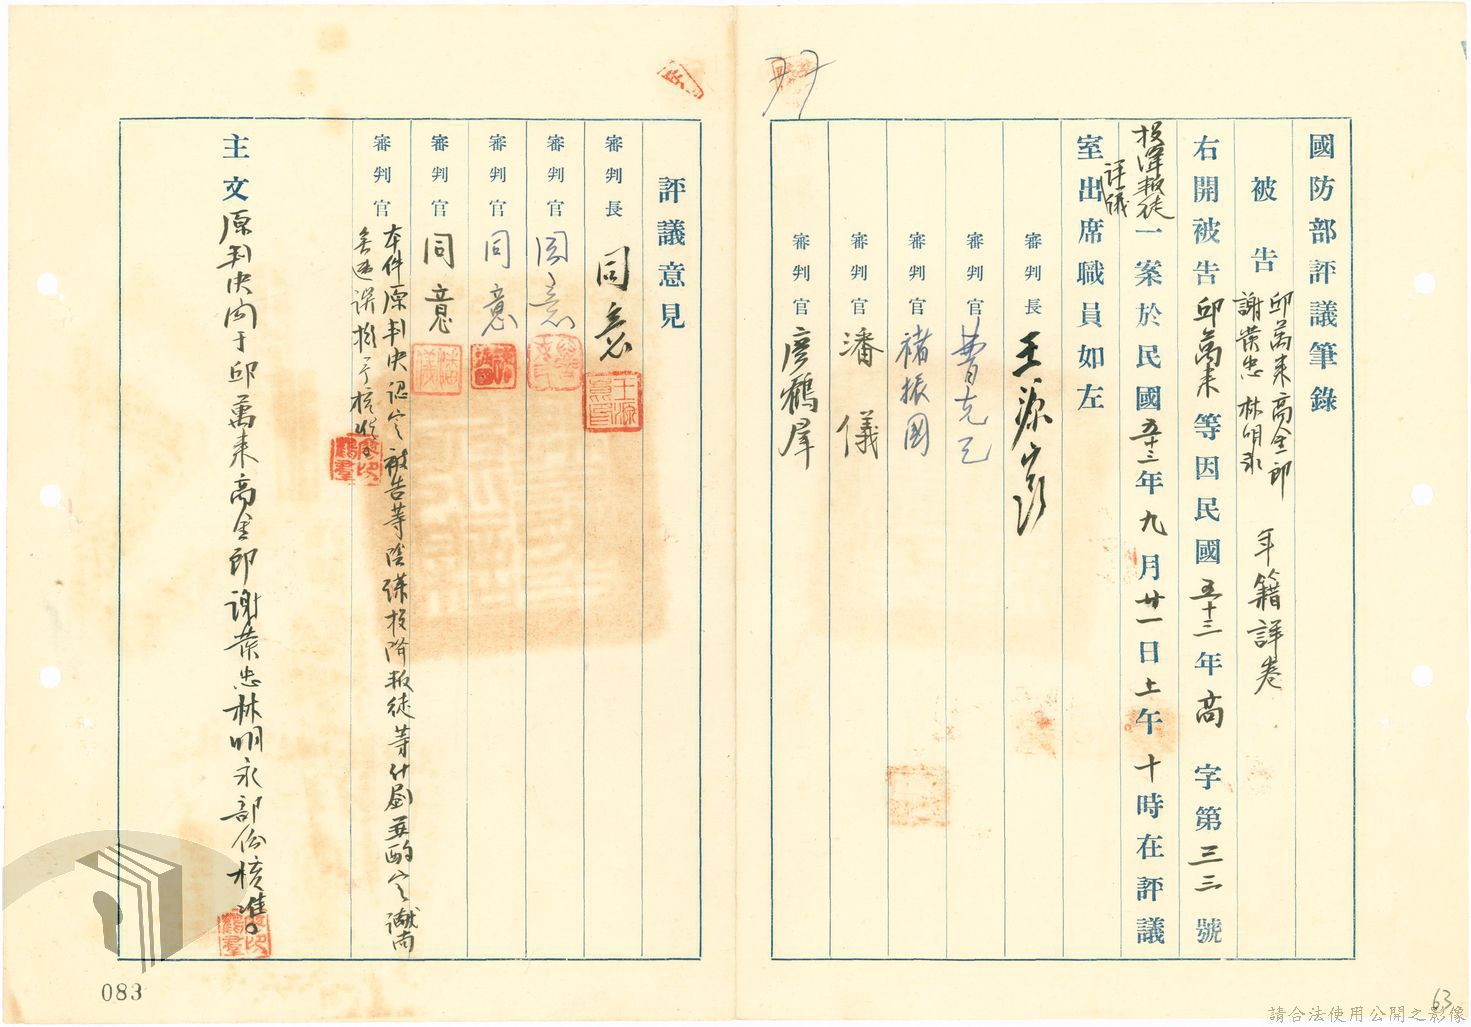 國防部評議筆錄
被告 邱萬來 高金郎
謝榮忠 林明永 年籍詳卷
右開被告邱萬來等因民國五十三年高字第三三號
投降叛徒一案於民國五十三年九月廿一日上午十時在評議
評議
室出席職員如左
審判長 王源
審判官 曹克
審判官 褚振國
審判官 潘儀
審判官 廖鶴群
評議意見
審判長 同意
審判官 同意
審判官 同意
審判官 同意
審判官 本件原判決認定被告等陰謀投降叛徒等什劇並酌定讞尚
無違誤擬予核准
主文 原判決關于邱萬來高金郎謝榮忠林明永部份核准。
083
63
請合法使用公開之影像